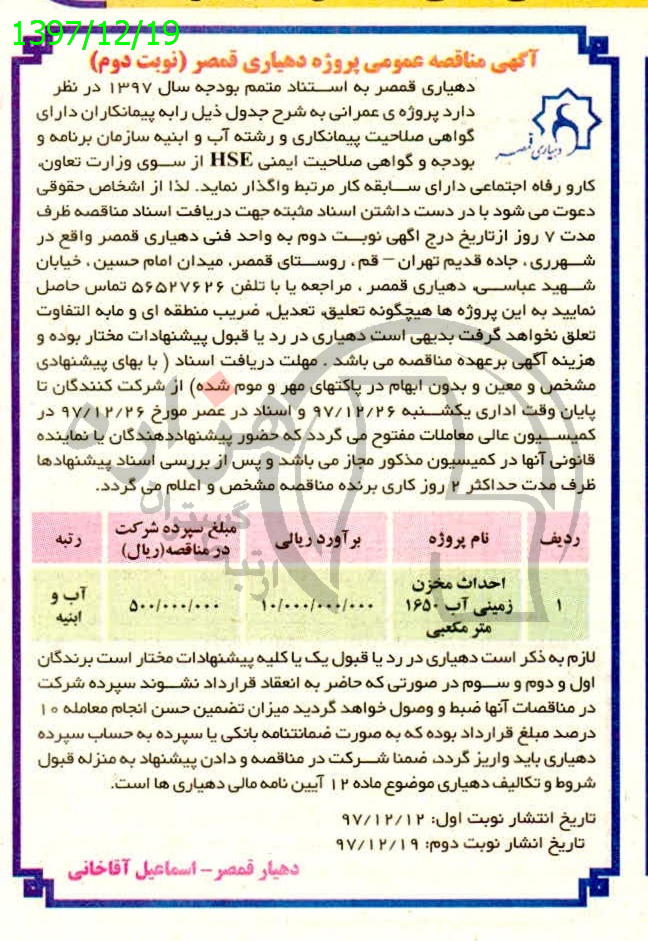 1397/12/19
آگهی مناقصه عمومی پروژه دهیاری قمصر (نوبت دوم)
دهیاری قمصر به استناد متمم بودجه سال ۱۳۹۷ در نظر
دارد پروژه ی عمرانی به شرح جدول ذیل رابه پیمانکاران دارای
گواهی صلاحیت پیمانکاری و رشته آب و ابنیه سازمان برنامه و
بودجه و گواهی صلاحیت ایمنی HSE از سوی وزارت تعاون،
دهیاری قمصر
کارو رفاه اجتماعی دارای سابقه کار مرتبط واگذار نماید. لذا از اشخاص حقوقی
دعوت می شود با در دست داشتن اسناد مثبته جهت دریافت اسناد مناقصه ظرف
مدت ۷ روز ازتاریخ درج اگهی نوبت دوم به واحد فنی دهیاری قمصر واقع در
شهرری ، جاده قدیم تهران – قم ، روستای قمصر، میدان امام حسین ، خیابان
شهید عباسی، دهیاری قمصر ، مراجعه یا با تلفن ۵۶۵۲۷۶۲۶ تماس حاصل
نمایید به این پروژه ها هیچگونه تعلیق، تعدیل، ضریب منطقه ای و مابه التفاوت
تعلق نخواهد گرفت بدیهی است دهیاری در رد یا قبول پیشنهادات مختار بوده و
هزینه آگهی برعهده مناقصه می باشد . مهلت دریافت اسناد ( با بهای پیشنهادی
مشخص و معین و بدون ابهام در پاکتهای مهر و موم شده) از شرکت کنندگان تا
پایان وقت اداری یکشنبه ۹۷/۱۲/۲۶ و اسناد در عصر مورخ ۹۷/۱۲/۲۶ در
کمیسیون عالی معاملات مفتوح می گردد که حضور پیشنهاددهندگان یا نماینده
قانونی آنها در کمیسیون مذکور مجاز می باشد و پس از بررسی اسناد پیشنهادها
ظرف مدت حداکثر ۲ روز کاری برنده مناقصه مشخص و اعلام می گردد.
ردیف نام پروژه برآورد ریالی مبلغ سپرده شرکت در مناقصه(ریال) رتبه
۱ احداث مخزن زمینی آب ۱۶۵۰ متر مکعبی ۱۰/۰۰۰/۰۰۰/۰۰۰ ۵۰۰/۰۰۰/۰۰۰ آب و ابنیه
لازم به ذکر است دهیاری در رد یا قبول یک یا کلیه پیشنهادات مختار است برندگان
اول و دوم و سوم در صورتی که حاضر به انعقاد قرارداد نشوند سپرده شرکت
در مناقصات آنها ضبط و وصول خواهد گردید میزان تضمین حسن انجام معامله ۱۰
درصد مبلغ قرارداد بوده که به صورت ضمانتنامه بانکی یا سپرده به حساب سپرده
دهیاری باید واریز گردد، ضمنا شرکت در مناقصه و دادن پیشنهاد به منزله قبول
شروط و تکالیف دهیاری موضوع ماده ۱۲ آیین نامه مالی دهیاری ها است.
تاریخ انتشار نوبت اول: ۹۷/۱۲/۱۲
تاریخ انشار نوبت دوم: ۹۷/۱۲/۱۹
دهیار قمصر – اسماعیل آقاخانی